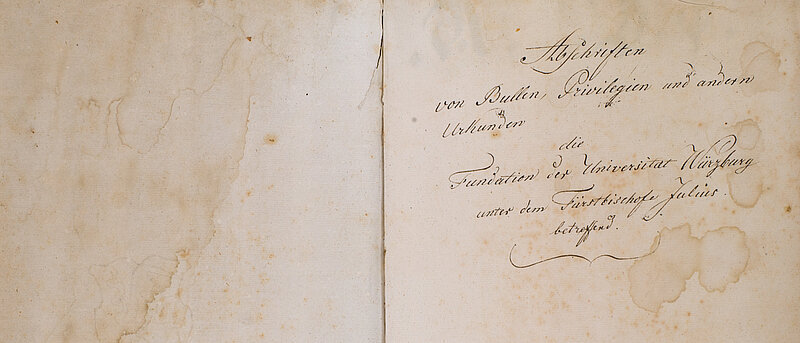 Abschriften
von Bullen, Privilegien und andern
Urkunden
die
Fundation der Universitat Würzburg
unter dem Fürstbischofe Julius
betreffend.